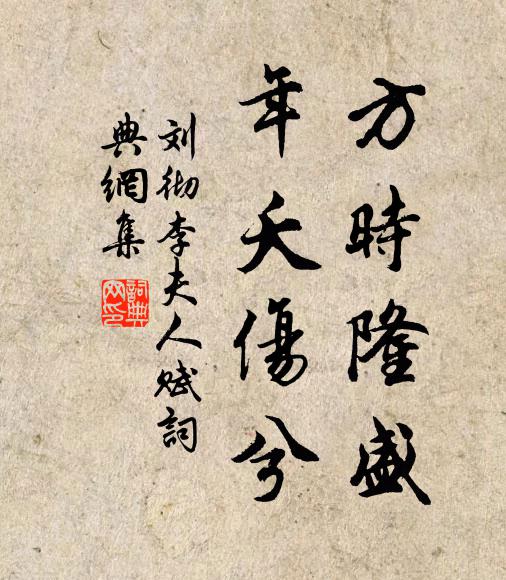 方時隆盛
年夭傷兮
刘彻李夫人赋詞
典網集
詞典
网印